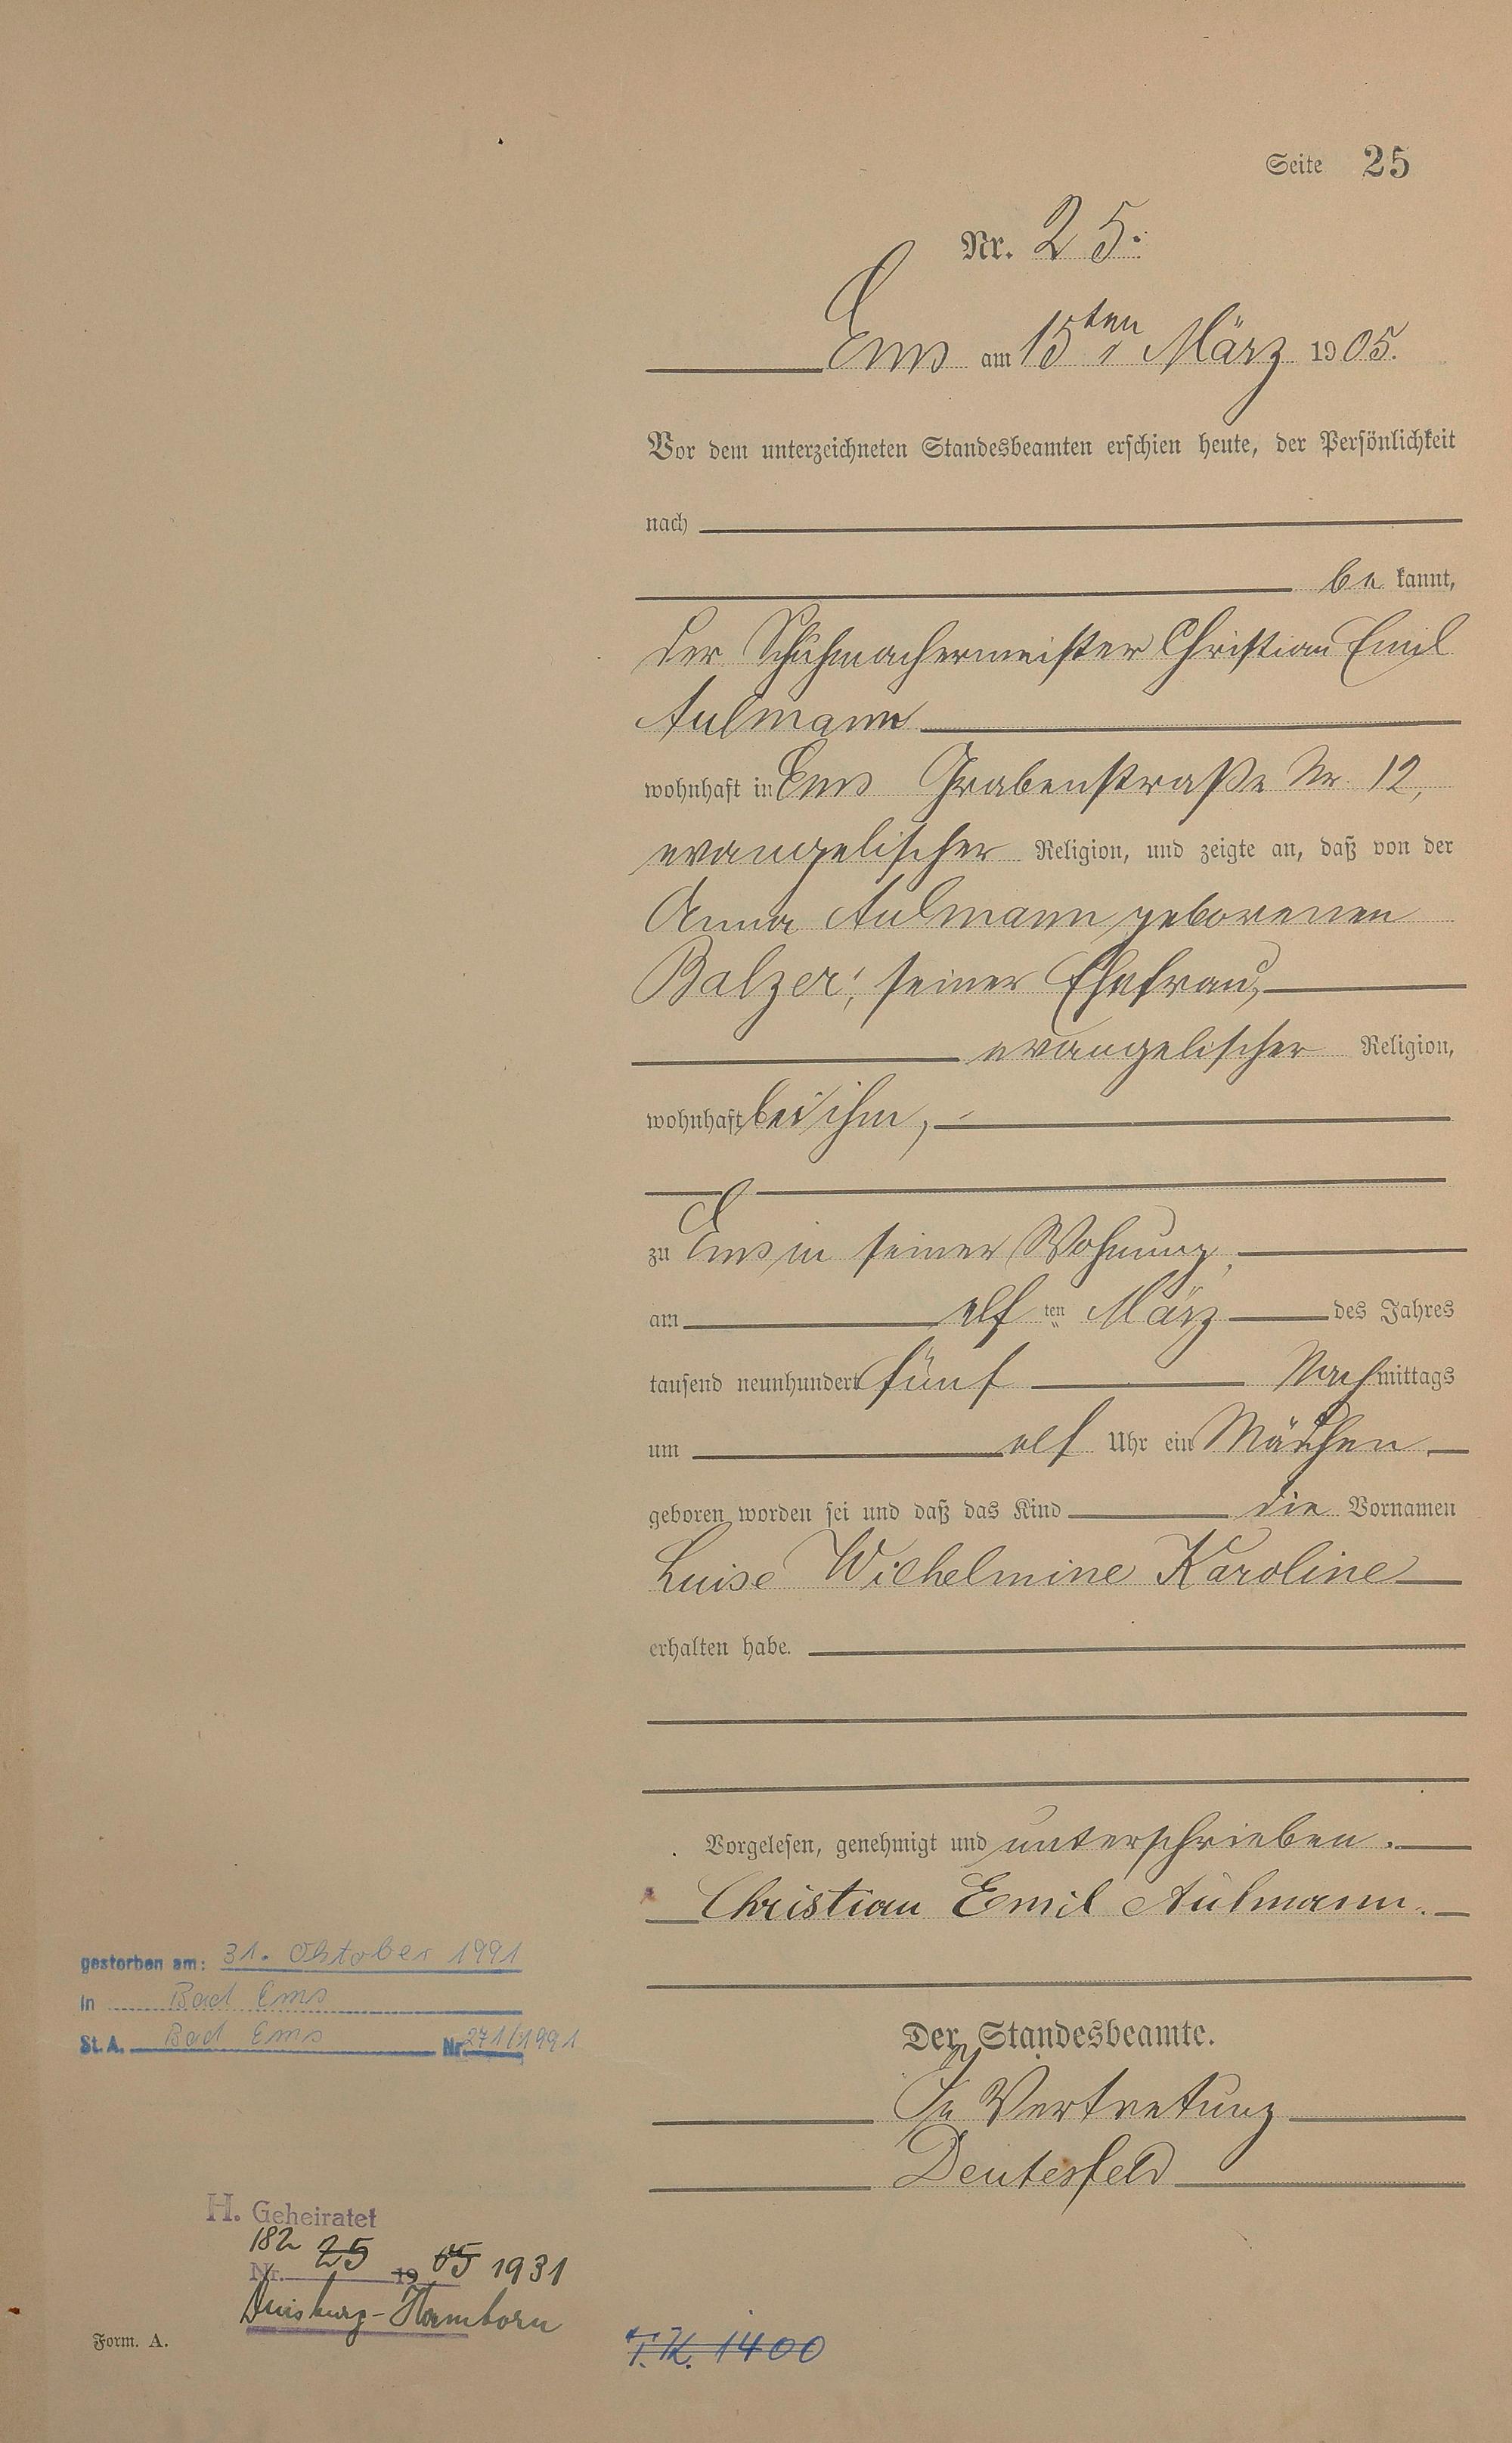 Seite 25
Nr. 25.
Ems am 15ten März 1905.
Vor dem unterzeichneten Standesbeamten erschien heute, der Persönlichkeit
nach
be kannt,
der Schuhmachermeister Christian Emil
Aulmann
wohnhaft in Ems Grabenstraße Nr. 12,
evangelischer Religion, und zeigte an, daß von der
Anna Aulmann geborenen
Balzer, seiner Ehefrau,
evangelischer Religion,
wohnhaft bei ihm,
zu Ems in seiner Wohnung,
am elf ten März des Jahres
tausend neunhundert fünf Nachmittags
um elf Uhr ein Mädchen
geboren worden sei und daß das Kind die Vornamen
Luise Wilhelmine Karoline
erhalten habe.
Vorgelesen, genehmigt und unterschrieben.
Christian Emil Aulmann.
Der Standesbeamte.
In Vertretung
Deutesfeld
gestorben am: 31. Oktober 1991
in Bad Ems
St. A. Bad Ems Nr. 271/1991
H. Geheiratet
182 25
Nr. 19 05 1931
Duisburg-Hamborn
Form. A.
T.K. 1400